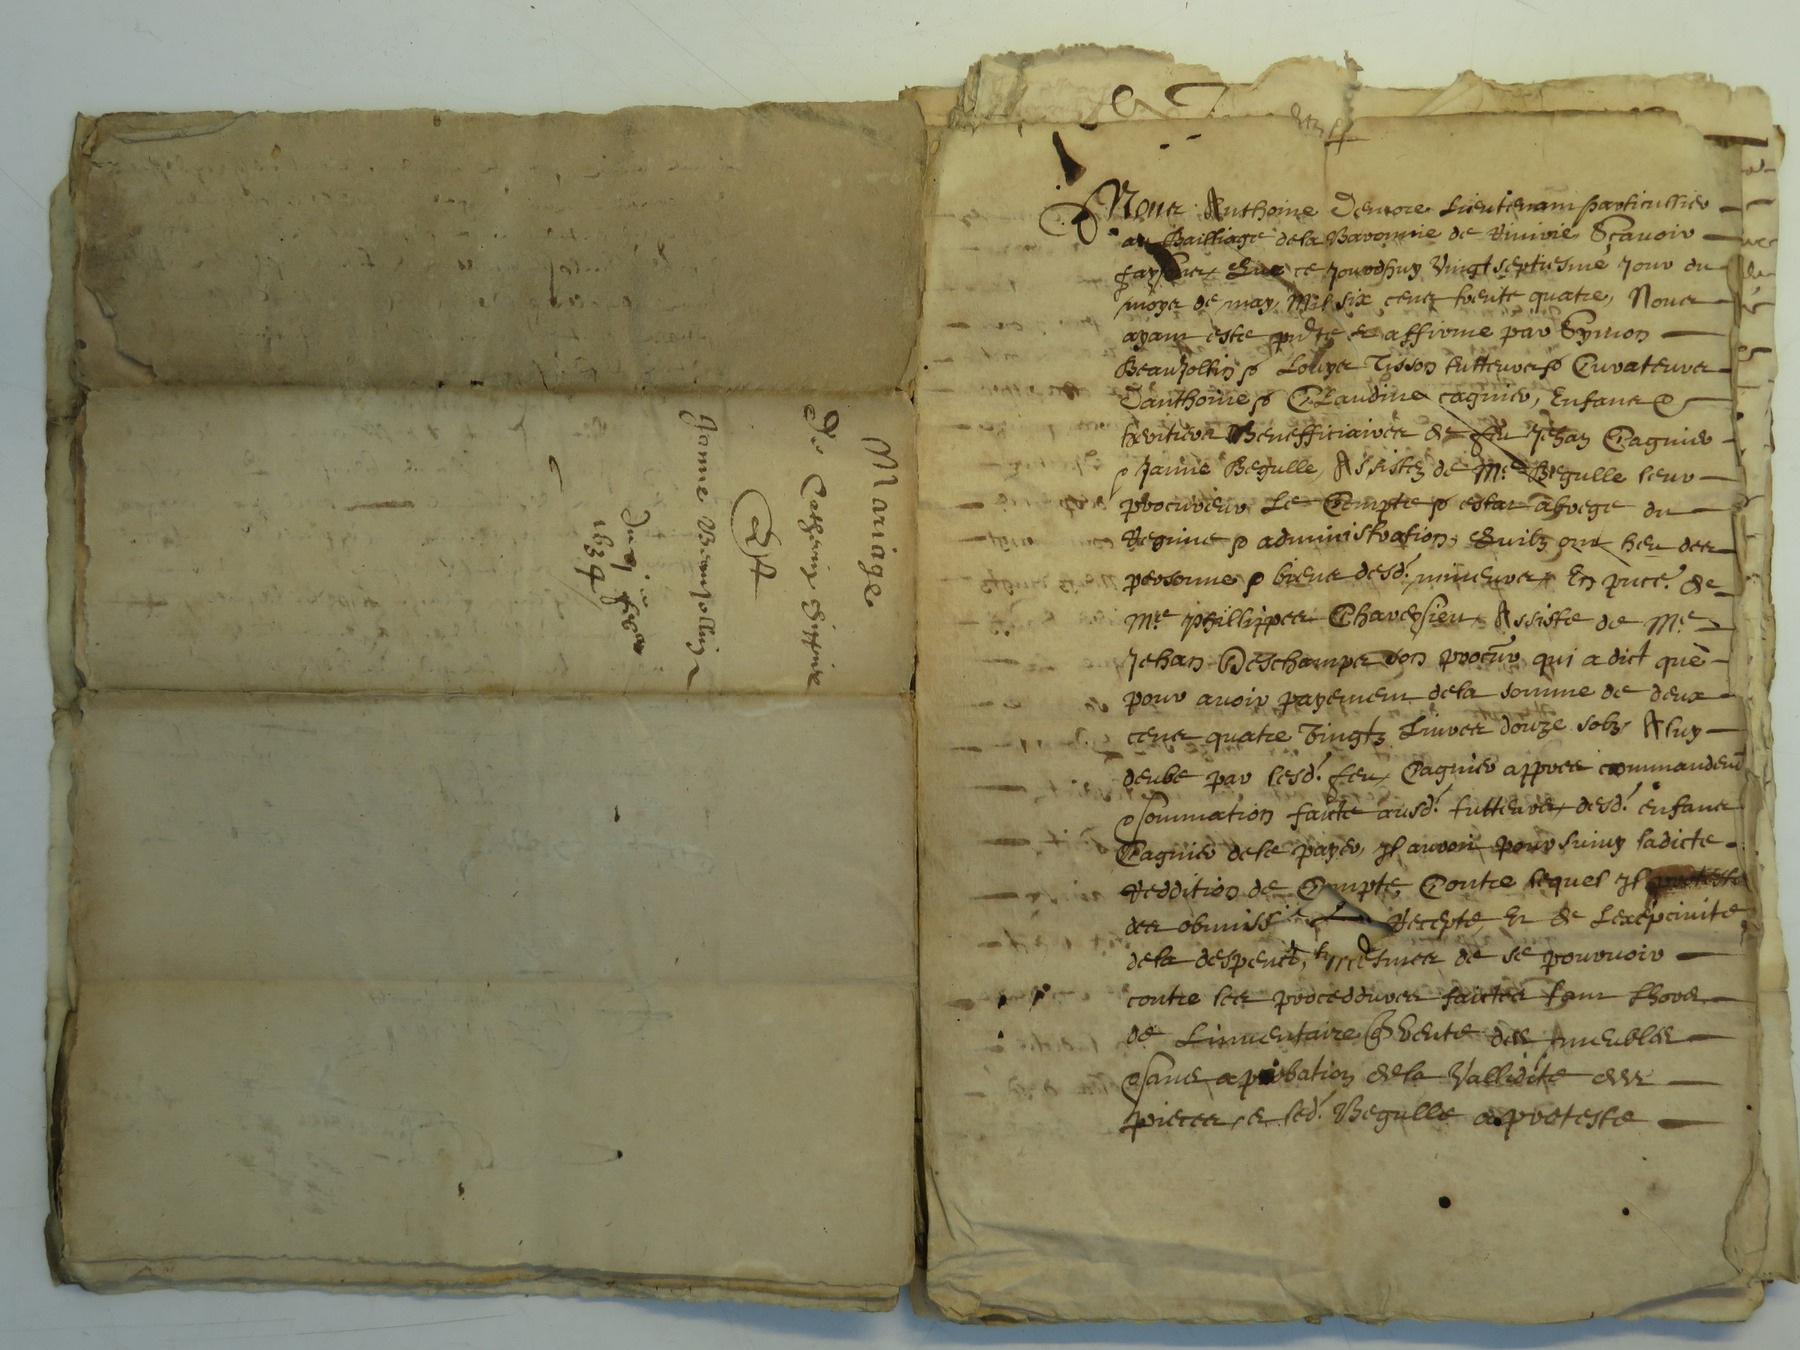 Mariage
De Catherin
Et
Janne Beaujollin
Du
1634
Nous Anthoine Demore Lieutenant particullier
au Bailliage de la Baronnie de Sçavoir
faysons Que ce Jourdhuy Vingt septiesme Jour du
moys de may, Mil six cens trente quatre, Nous
ayant este pnte & affirme par Symon
Beaujollin & Louys Tisson tutteurs & Curateurs
Danthoine & Claudine Cagnier, Enfans &
heritiers Benefficiaires de feu Jehan Cagnier
& Janne Begulle, Assistez de Me Begulle leur
procureur Le Compte & estat abrege du
Regime & administration, Quilz ont heu des
personnes & biens desd. mineurs, En pnce. de
Me Phillippes Charessieu, Assiste de Me
Jehan Deschamps son procur qui a dict que
pour avoir payement de la somme de deux
cens quatre Vingtz Livres douze solz A luy
deube par lesd. feu Cagnier appres commandemt
& sommation faicte ausd. tutteurs desd. enfans
Cagnier de le payer, Jl auroit poursuivy ladicte
Reddition de Compte, Contre lequel Jl proteste
des obmiss Recepte, Et de Lexepcivite
de la despence, Mesmes de se pourvoir
contre les procedures faictes tant Lhors
de Linventaire & Vente des meubles
& sans aprobation de la Vallidite des
pieces, & led. Begulle a proteste